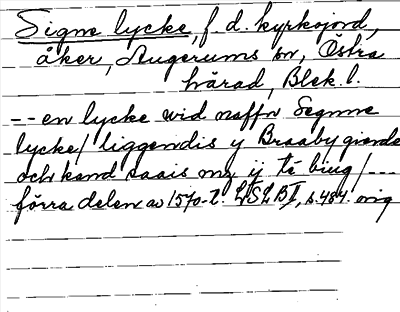 Signe lycke, f. d. kyrkojord,
åker, Augerums sn, Östra
härad, Blek. l.
-- en lycke wid naffn Segnne
lycke/ liggendis y Braaby giende
och kand saais mz ij tö biug/---
förra delen av 1570-t. LSLB I, s. 484. orig